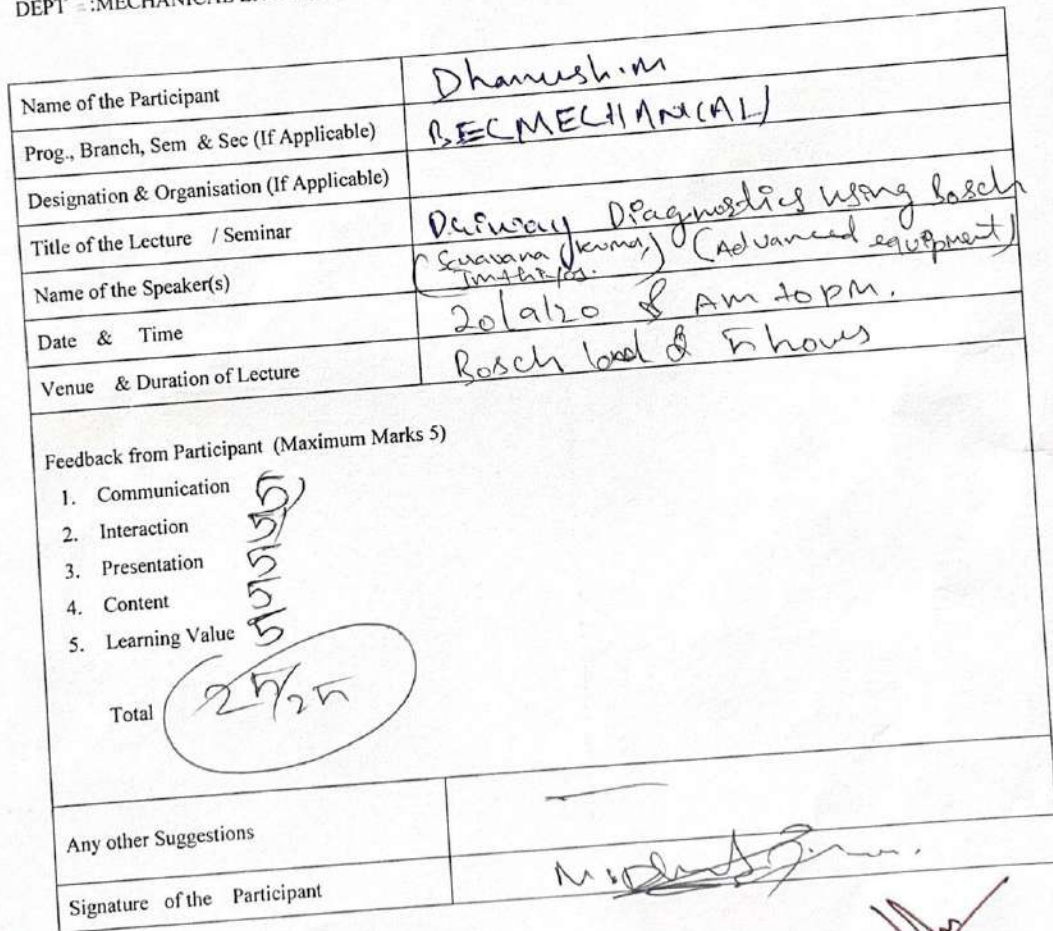 DEPT :MECHANICAL
Name of the Participant Dhanush.M
Prog., Branch, Sem & Sec (If Applicable) B.E(MECHANICAL)
Designation & Organisation (If Applicable)
Title of the Lecture / Seminar Diagnostics using Bosch
Name of the Speaker(s) (Advanced equipment)
Date & Time 20/9/20 & AM to PM.
Venue & Duration of Lecture Bosch & 5 hours
Feedback from Participant (Maximum Marks 5)
1. Communication 5
2. Interaction 5
3. Presentation 5
4. Content 5
5. Learning Value 5
Total 25/25
Any other Suggestions —
Signature of the Participant